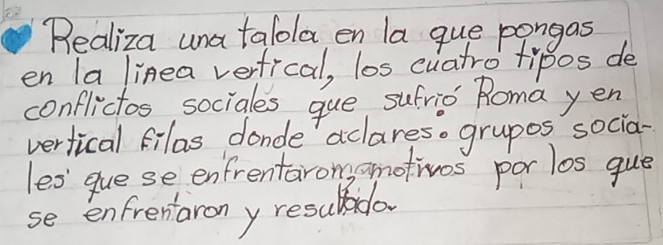 Realiza una tabla en la que pongas
en la linea vertical, los cuatro tipos de
conflictos sociales que sufrió Roma y en
vertical filas donde aclares: grupos socia-
les que se enfrentarom, motivos por los que
se enfrentaron y resultado.